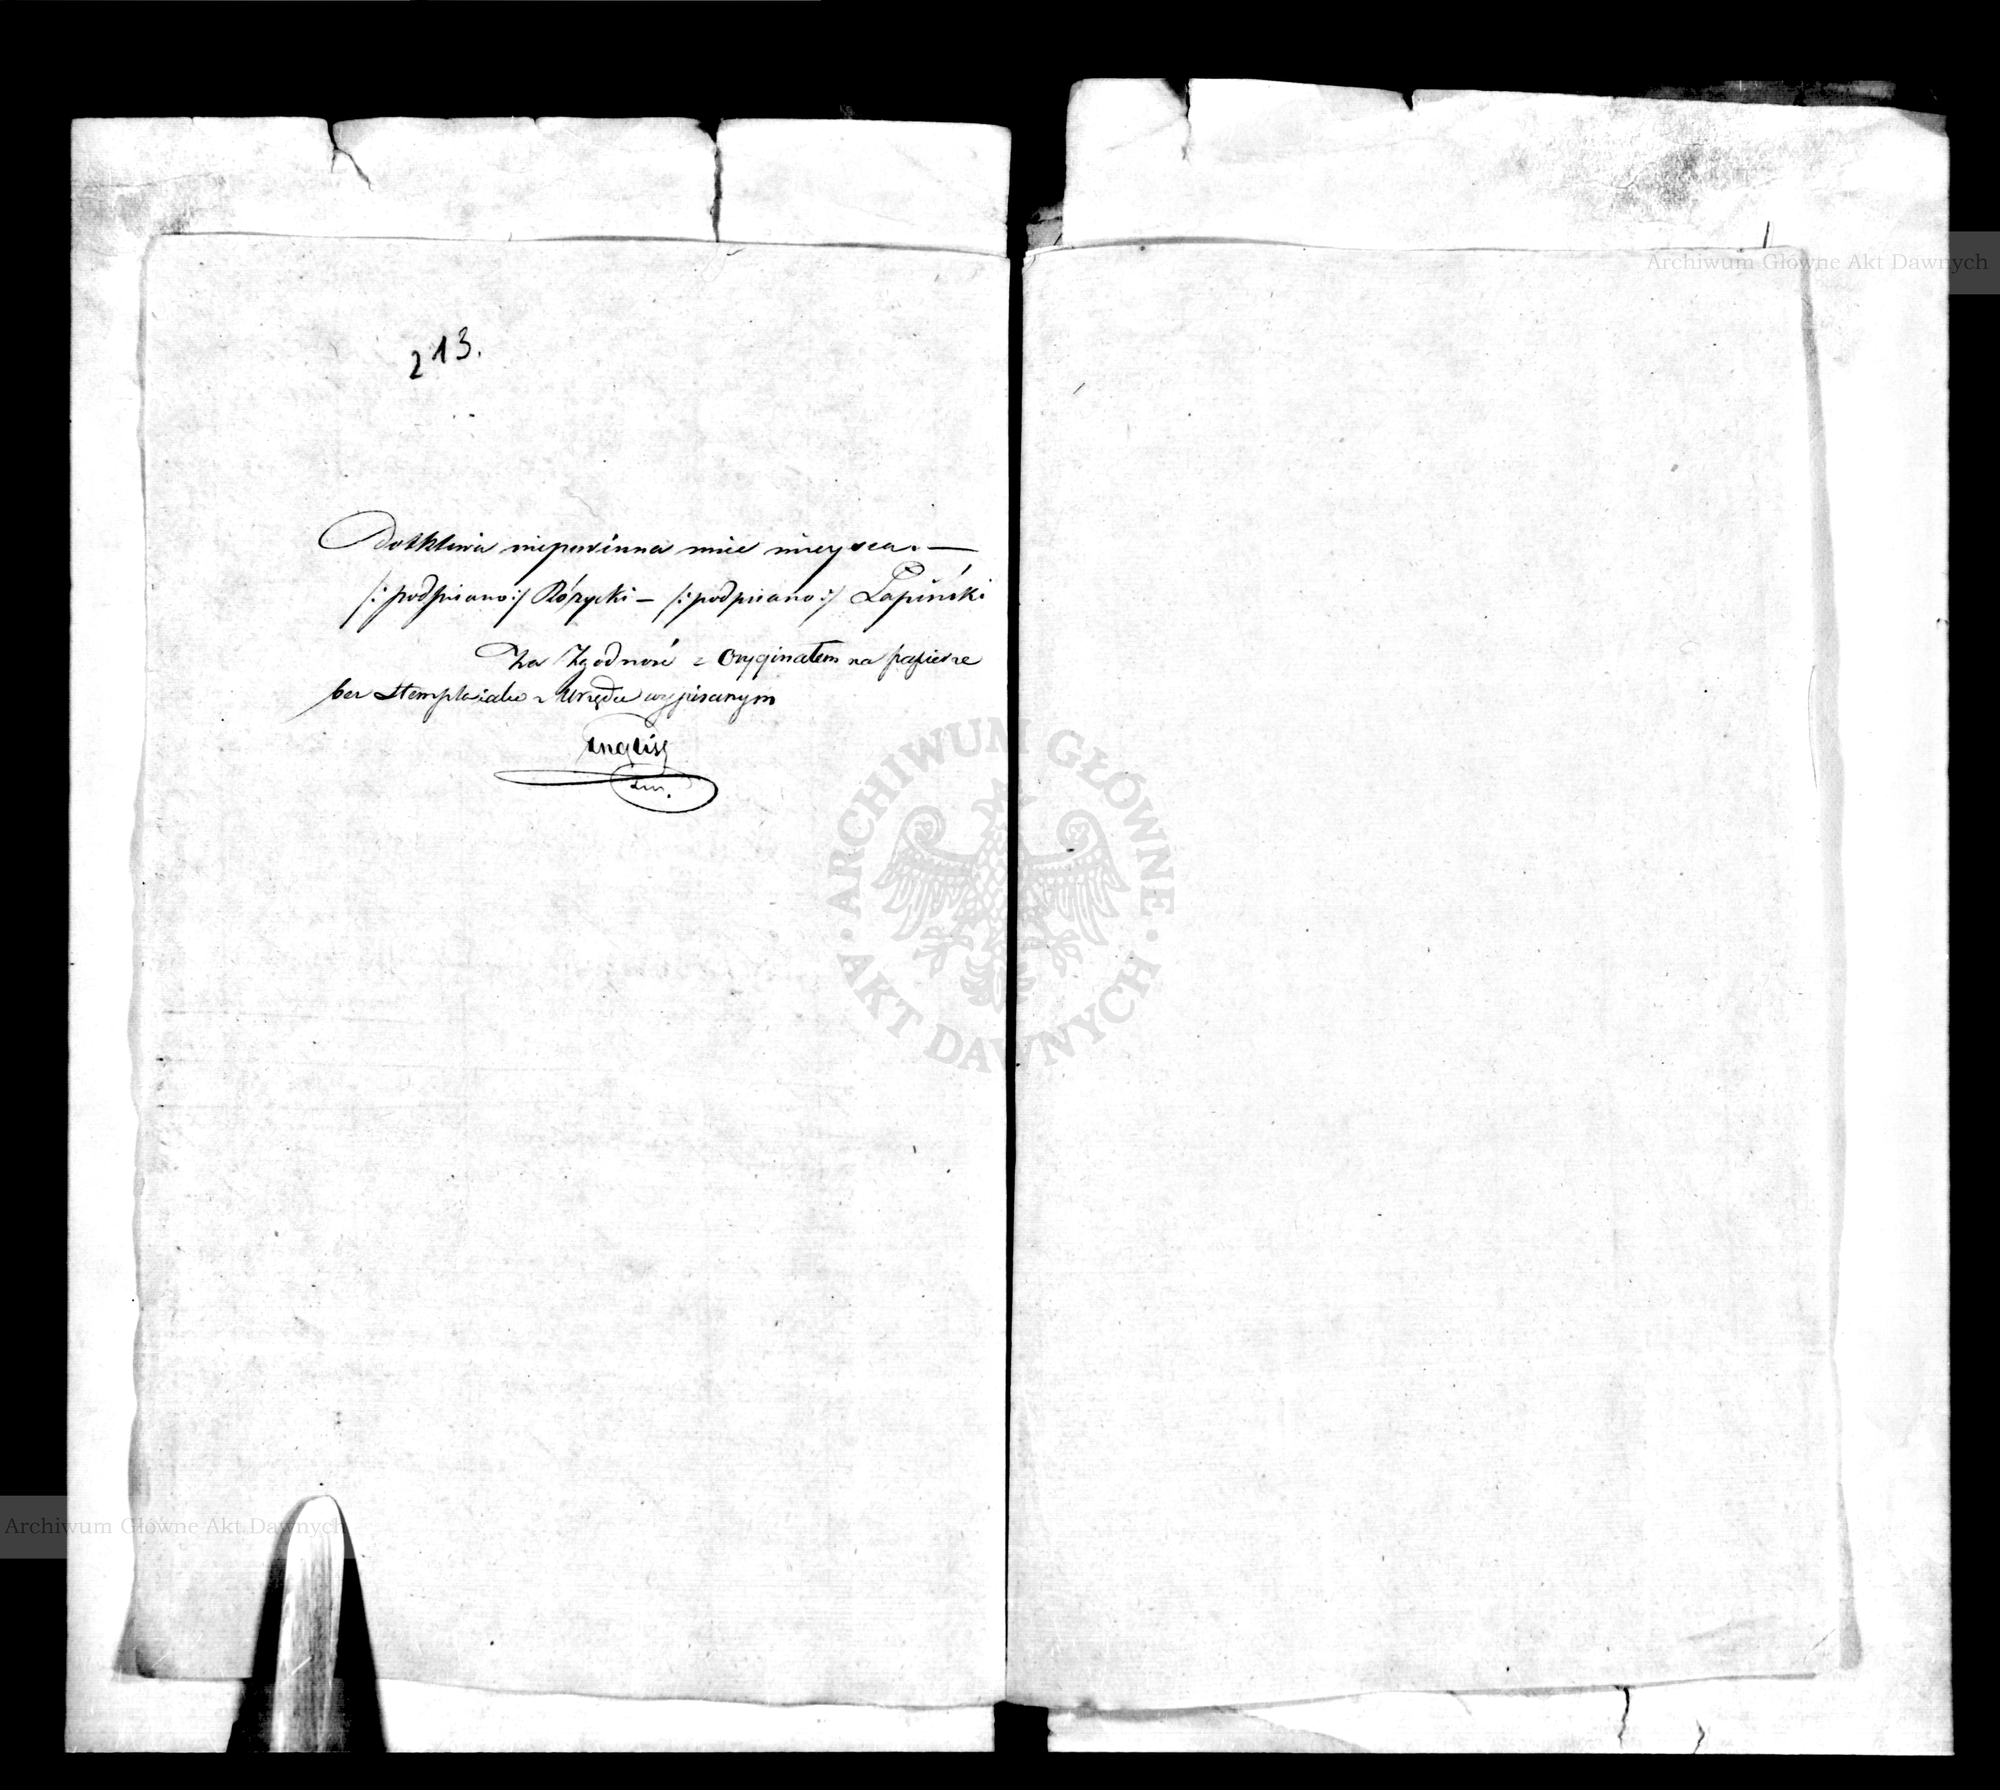 213.
Dotkliwa niepowinna mieć mieysca. —
/: podpisano :/ Różycki — /: podpisano :/ Łapiński
Za Zgodność z Oryginałem na papierze
bez Stempla z Urzędu wypisanym
Anglisz
Archiwum Główne Akt Dawnych
ARCHIWUM GŁÓWNE
AKT DAWNYCH
Archiwum Główne Akt Dawnych